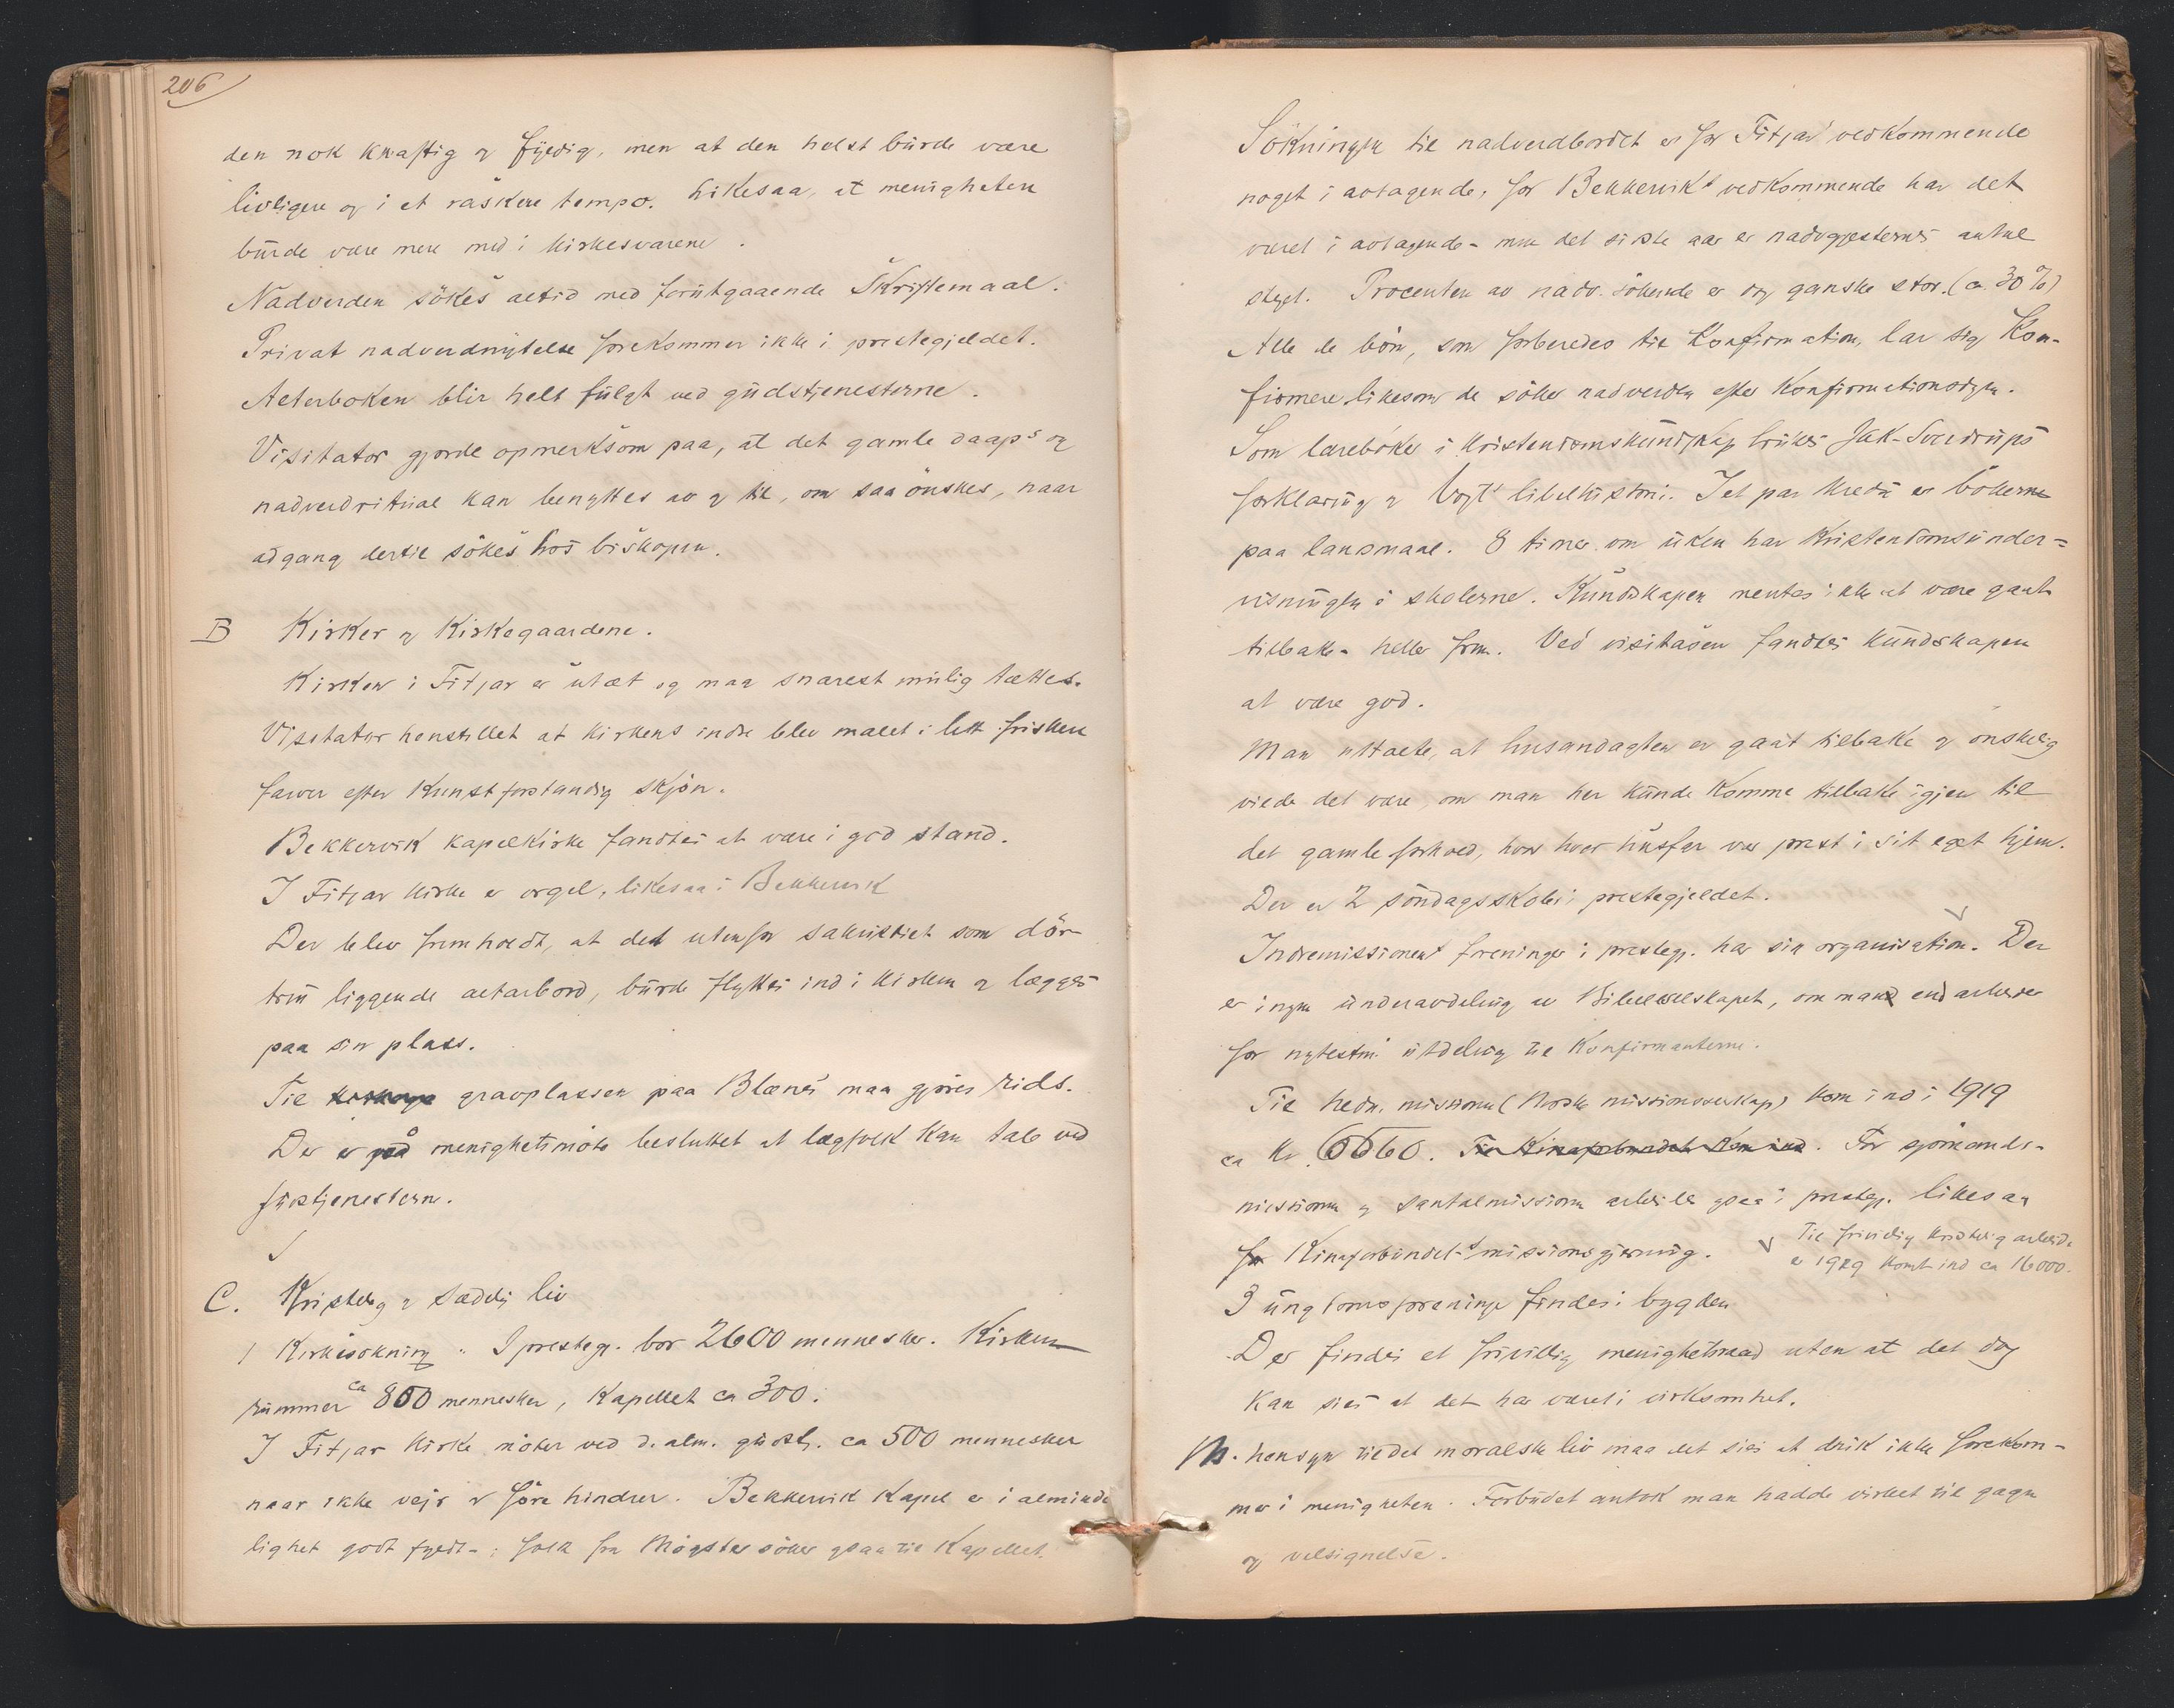 206
den nok kraftig og fyldig, men at den helst burde være
livligere og i et raskere tempo. Likesaa, at menigheten
burde være mere med i kirkesvarene.
Nadverden søkes altid med forutgaaende Skriftemaal.
Privat nadverdnytelse forekommer ikke i prestegjeldet.
Alterboken blir helt fulgt ved gudstjenesterne.
Visitator gjorde opmerksom paa, at det gamle daaps og
nadverdritual kan benyttes av og til, om saa ønskes, naar
adgang dertil søkes hos biskopen.
B Kirker og Kirkegaardene.
Kirken i Fitjar er utæt og maa snarest mulig tættes.
Visitator henstillet at kirkens indre blev malet i lett friskere
farver efter Kunstforstandig skjøn.
Bekkervik kapelkirke fandtes at være i god stand.
I Fitjar kirke er orgel, likesaa i Bekkervik
Der blev fremholdt, at det utenfor sakristiet som dør-
trin liggende alterbord, burde flyttes ind i kirken og lægges
paa sin plass.
Til gravplassen paa Blænes maa gjøres rids.
Der er på menighetsmøte besluttet at lægfolk kan tale ved
gudstjenesterne.
C. Kristelig og sædelig liv
1 Kirkesøkning. I presteg. bor 2600 mennesker. Kirken
rummer ca 800 mennesker, Kapellet ca 300.
I Fitjar Kirke møter ved d. alm. gudstj. ca 500 mennesker
naar ikke veir og føre hindrer. Bekkervik Kapel er i alminde
lighet godt fyldt-; folk fra Møgster søker ogsaa til Kapellet.
Søkningen til nadverdbordet er for Fitjar vedkommende
noget i avtagende, for Bekkerviks vedkommende har det
været i avtagende - men det siste aar er nadvgjesternes antal
steget. Procenten av nadv. søkende er dog ganske stor. (ca. 30 %)
Alle de børn, som forberedes til Konfirmation, lar sig Kon-
firmere likesom de søker nadverden efter Konfirmationsdagen.
Som lærebøker i kristendomskundskap brukes Jak. Sverdrups
forklaring og Vogts bibelhistorie. I et par kredse er bøkerne
paa landsmaal. 8 timer om uken har Kristendomsunder-
visningen i skolerne. Kundskapen mentes ikke at være gaat
tilbake - heller frem. Ved visitasen fandtes kundskapen
at være god.
Man uttalte, at husandagten er gaat tilbake og ønskelig
vilde det være, om man her kunde komme tilbake igjen til
det gamle forhold, hvor hver husfar var prest i sit eget hjem.
Der er 2 søndagsskoler i prestegjeldet.
Indremissionens foreninger i presteg. har sin organisation. Der
er ingen underavdeling av Bibelselskapet, om man end arbeider
for nytestm. utdeling til Konfirmanterne.
Til hedn. missionen (Norske missionsselskap) kom ind i 1919
ca kr. 6560. Til Kinaforbundet kom ind. For sjømands-
missionen og Santalmissionen arbeides ogsaa i presteg. likesaa
for Kinaforbundets missionsgjerning.
Til frivillig kristelig arbeide
e 1929 komt ind ca 16000.
3 ungdomsforeninger findes i bygden
Der findes et frivillig menighetsraad uten at det dog
kan sies at det har været i virksomhet.
M. hensyn til det moralske liv maa det sies at drik ikke forekom-
mer i menigheten. Forbudet antok man hadde virket til gagn
og velsignelse.